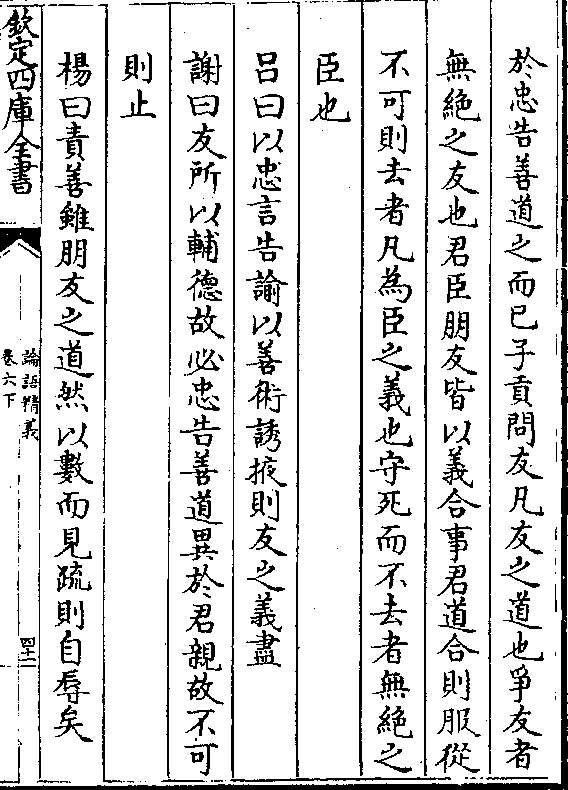 於忠告善道之而已子貢問友凡友之道也爭友者
無絶之友也君臣朋友皆以義合事君道合則服從
不可則去者凡為臣之義也守死而不去者無絶之
臣也
吕曰以忠言告諭以善術誘掖則友之義盡
謝曰友所以輔德故必忠告善道異於君親故不可
則止
楊曰責善雖朋友之道然以數而見疏則自辱矣
欽定四庫全書
論語精義
卷六下
四十二